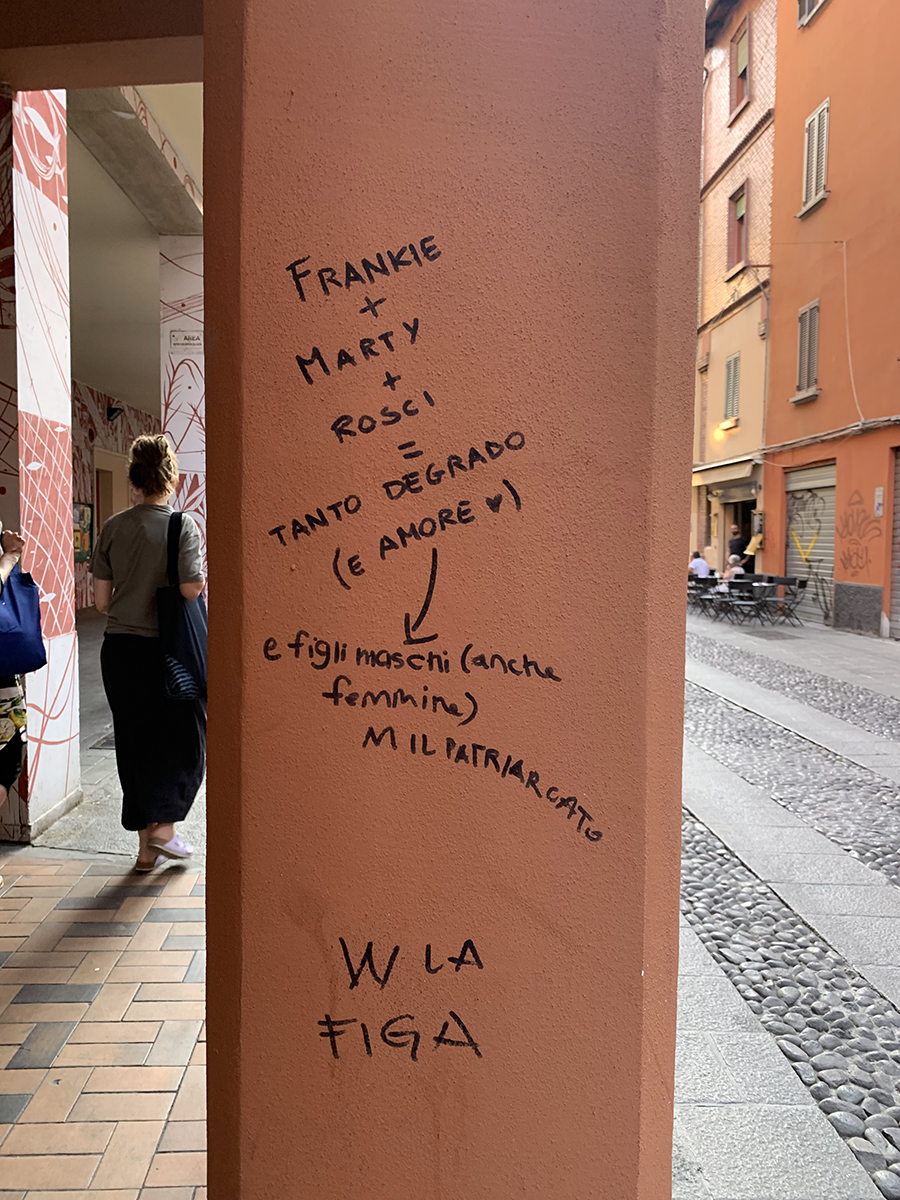 FRANKIE
+
MARTY
+
ROSCI
=
TANTO DEGRADO
(E AMORE ♥)
e figli maschi (anche
femmine)
M IL PATRIARCATO
W LA
FIGA
AREA